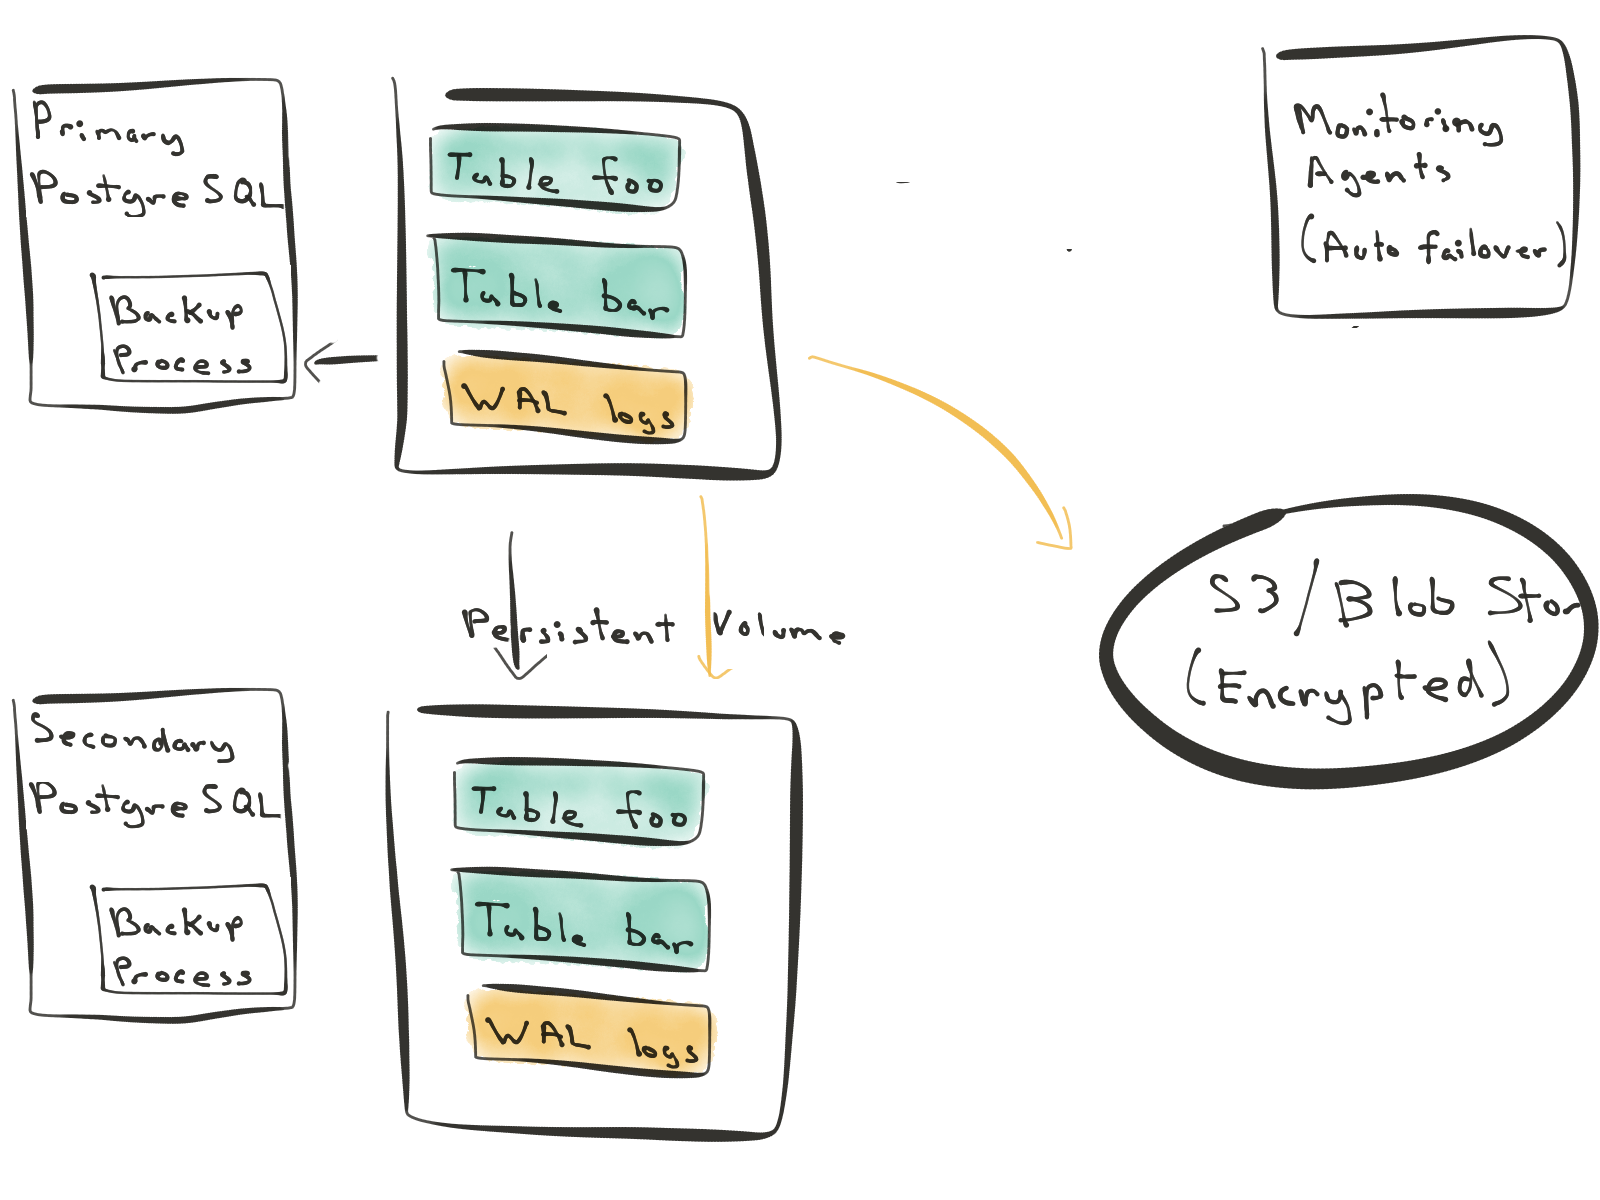 Primary
PostgreSQL
Backup
Process
Table foo
Table bar
WAL logs
Monitoring
Agents
(Auto failover)
Persistent Volume
S3/Blob Stor
(Encrypted)
Secondary
PostgreSQL
Backup
Process
Table foo
Table bar
WAL logs